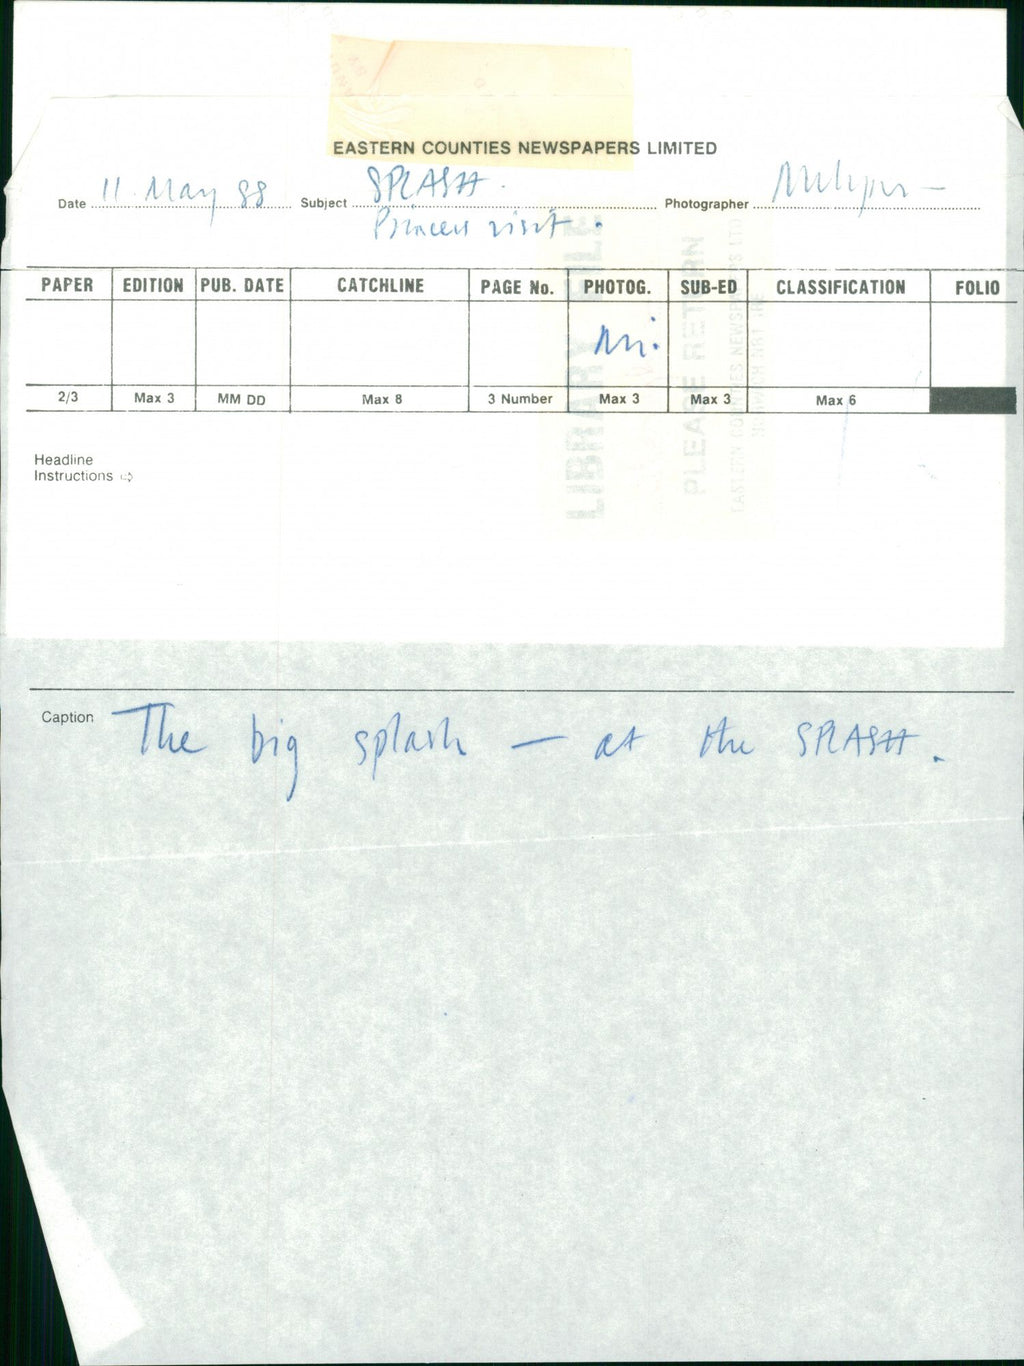 EASTERN COUNTIES NEWSPAPERS LIMITED
Date 11 May 88 Subject SPLASH. Photographer
Princess visit.
PAPER EDITION PUB. DATE CATCHLINE PAGE No. PHOTOG. SUB-ED CLASSIFICATION FOLIO
2/3 Max 3 MM DD Max 8 3 Number Max 3 Max 3 Max 6
Headline
Instructions ⇨
Caption The big splash — at the SPLASH.
LIBRARY FILE
PLEASE RETURN
EASTERN COUNTIES NEWSPAPERS LTD